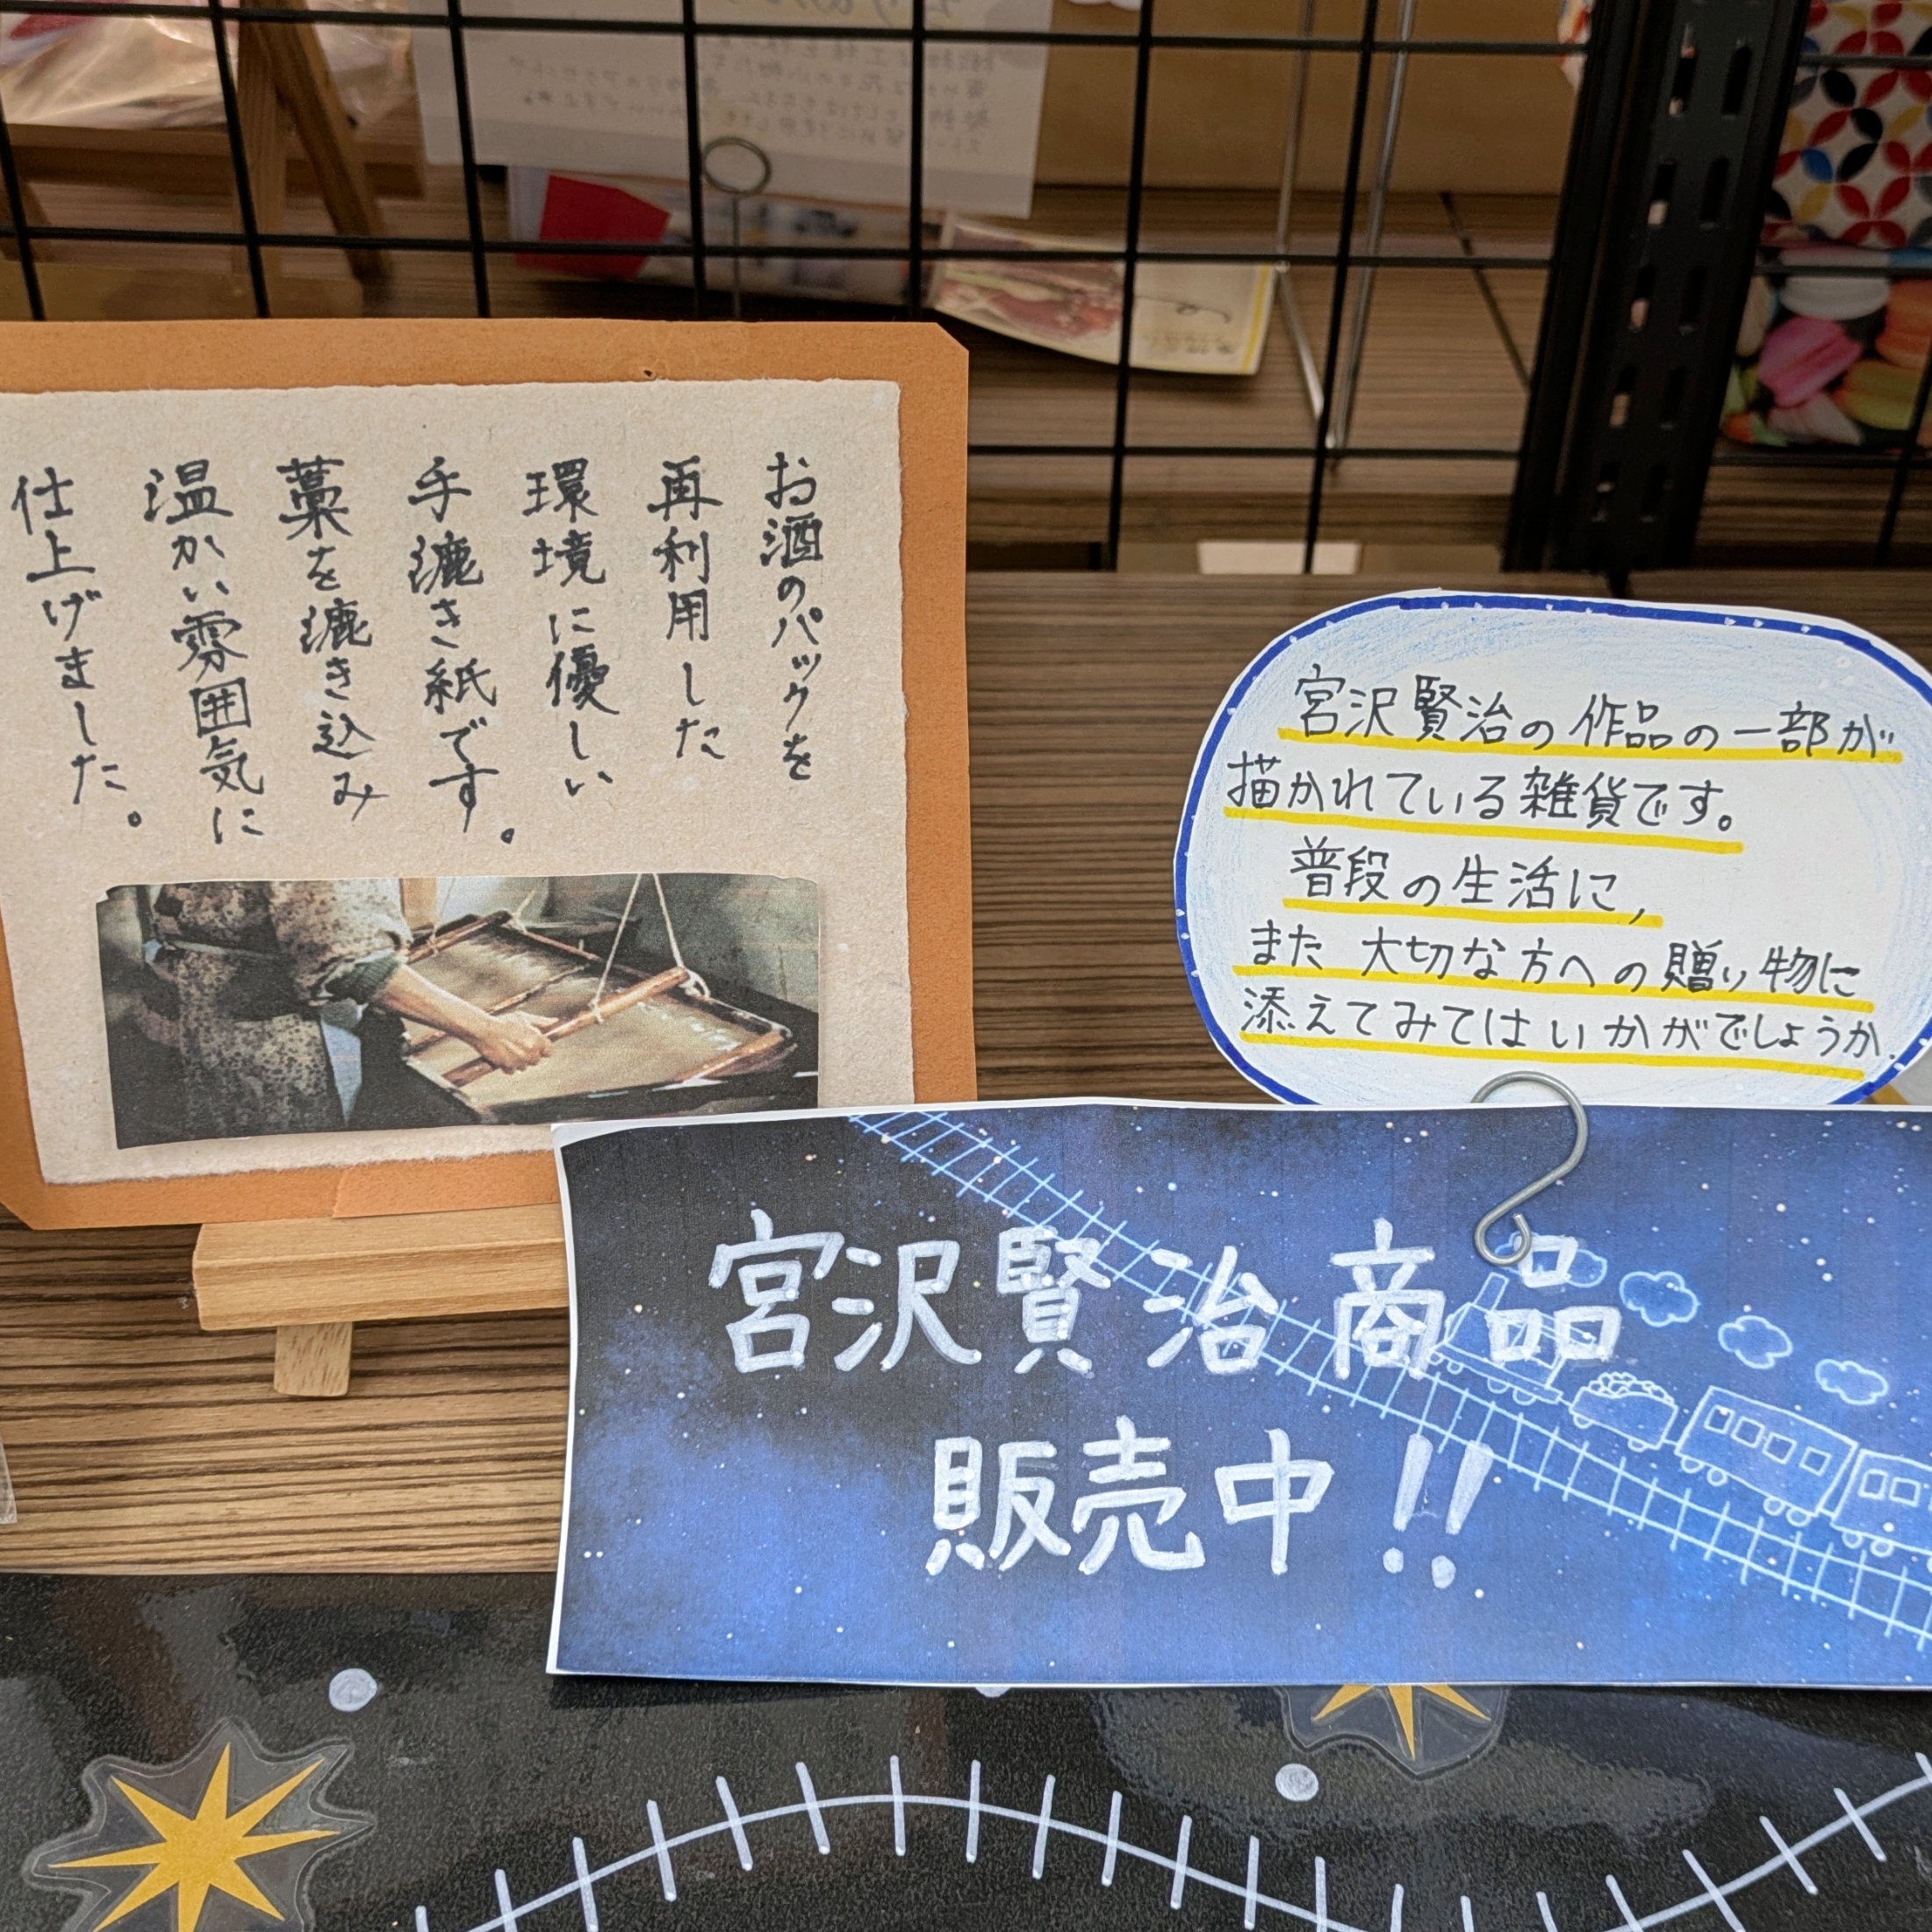 お酒のパックを
再利用した
環境に優しい
手漉き紙です。
藁を漉き込み
温かい雰囲気に
仕上げました。
宮沢賢治の作品の一部が
描かれている雑貨です。
普段の生活に,
また 大切な方への贈り物に
添えてみてはいかがでしょうか.
宮沢賢治商品
販売中!!